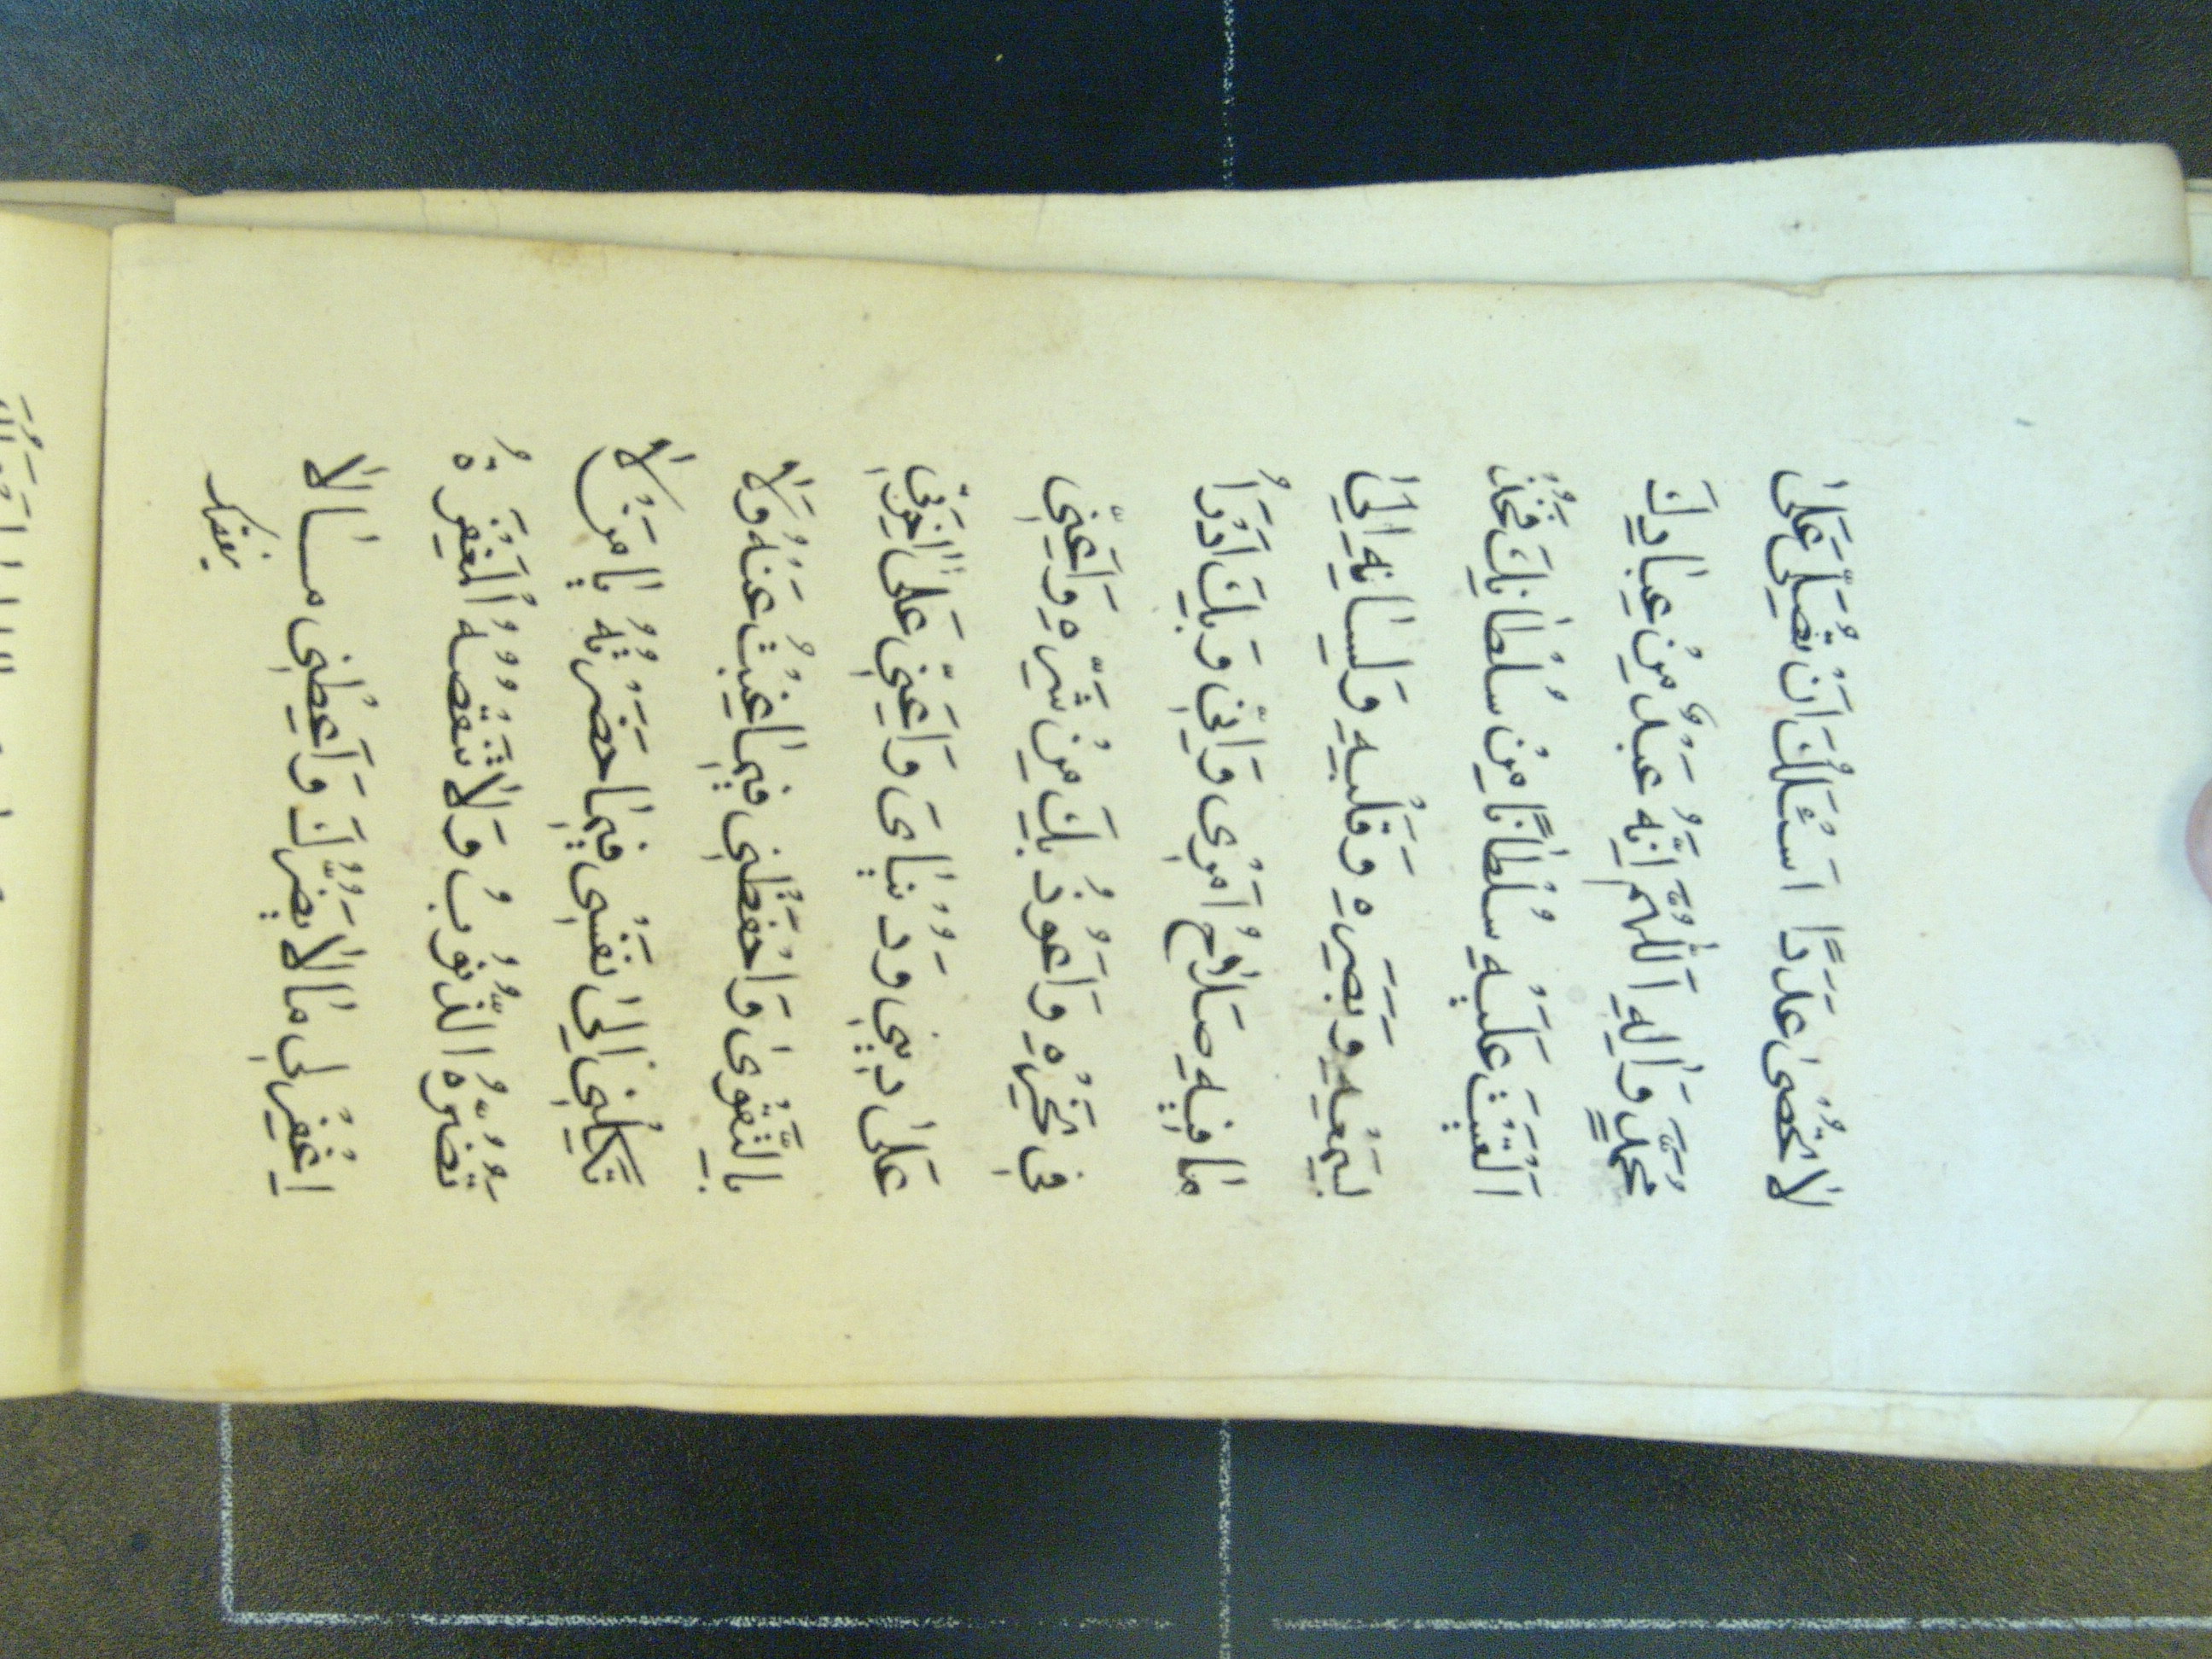 لٰا تُحْصىٰ عَدَدًا اَسْئَلُكَ اَنْ تُصَلِّىَ عَلىٰ
مُحَمَّدٍ وَاٰلِهِ اَللّٰهُمَّ اِنَّهُ عَبْدٌ مِنْ عِبٰادِكَ
اَلْقَيْتَ عَلَيْهِ سُلْطٰانًا مِنْ سُلْطٰانِكَ فَخُذْ
بِسَمْعِهِ وَبَصَرِهِ وَقَلْبِهِ وَلِسٰانِهِ اِلىٰ
مٰا فِيهِ صَلٰاحُ اَمْرِى وَاِنِّى وَبِكَ اَدْرَأُ
فِى نَحْرِهِ وَاَعُوذُ بِكَ مِنْ شَرِّهِ وَاَعِنِّى
عَلىٰ دِينِى وَدُنْيٰاىَ وَاَعِنِّى عَلىٰ اٰخِرَتِى
بِالتَّقْوىٰ وَاحْفَظْنِى فِيمٰا غِبْتُ عَنْهُ وَلٰا
تَكِلْنِى اِلىٰ نَفْسِى فِيمٰا حَضَرْتُهُ يٰا مَنْ لٰا
تَضُرُّهُ الذُّنُوبُ وَلٰا تَنْقُصُهُ الْمَغْفِرَةُ
اِغْفِرْ لِى مٰا لٰا يَضُرُّكَ وَاَعْطِنِى مٰا لٰا